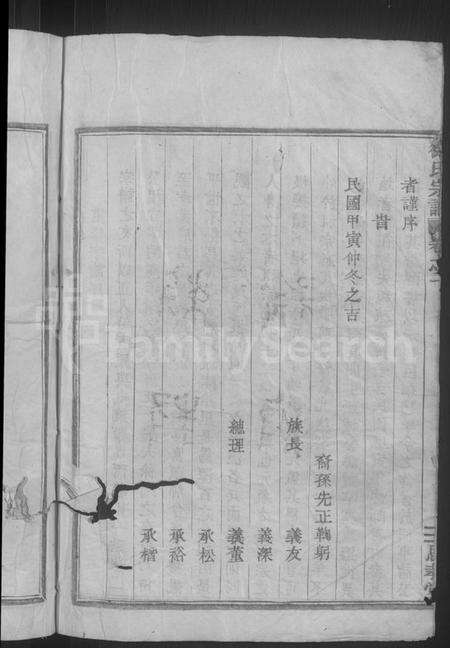 者謹序
旹
民國甲寅仲冬之吉
裔孫先正鞠躬
族長 義友
義深
總理 義董
承松
承裕
承㮣
FamilySearch